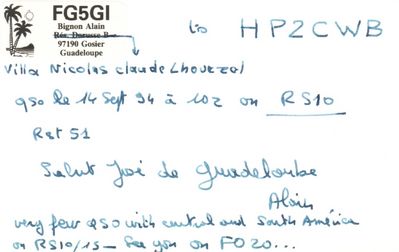 FG5GI
Bignon Alain
Rés. Darusse B
97190 Gosier
Guadeloupe
to HP2CWB
Villa Nicolas Claude
qso le 14 Sept 94 à 10z on RS10
Rst 51
Salut José de Guadeloupe
Alain
very few qso with central and South América
on RS10/15 - See you on FO20...